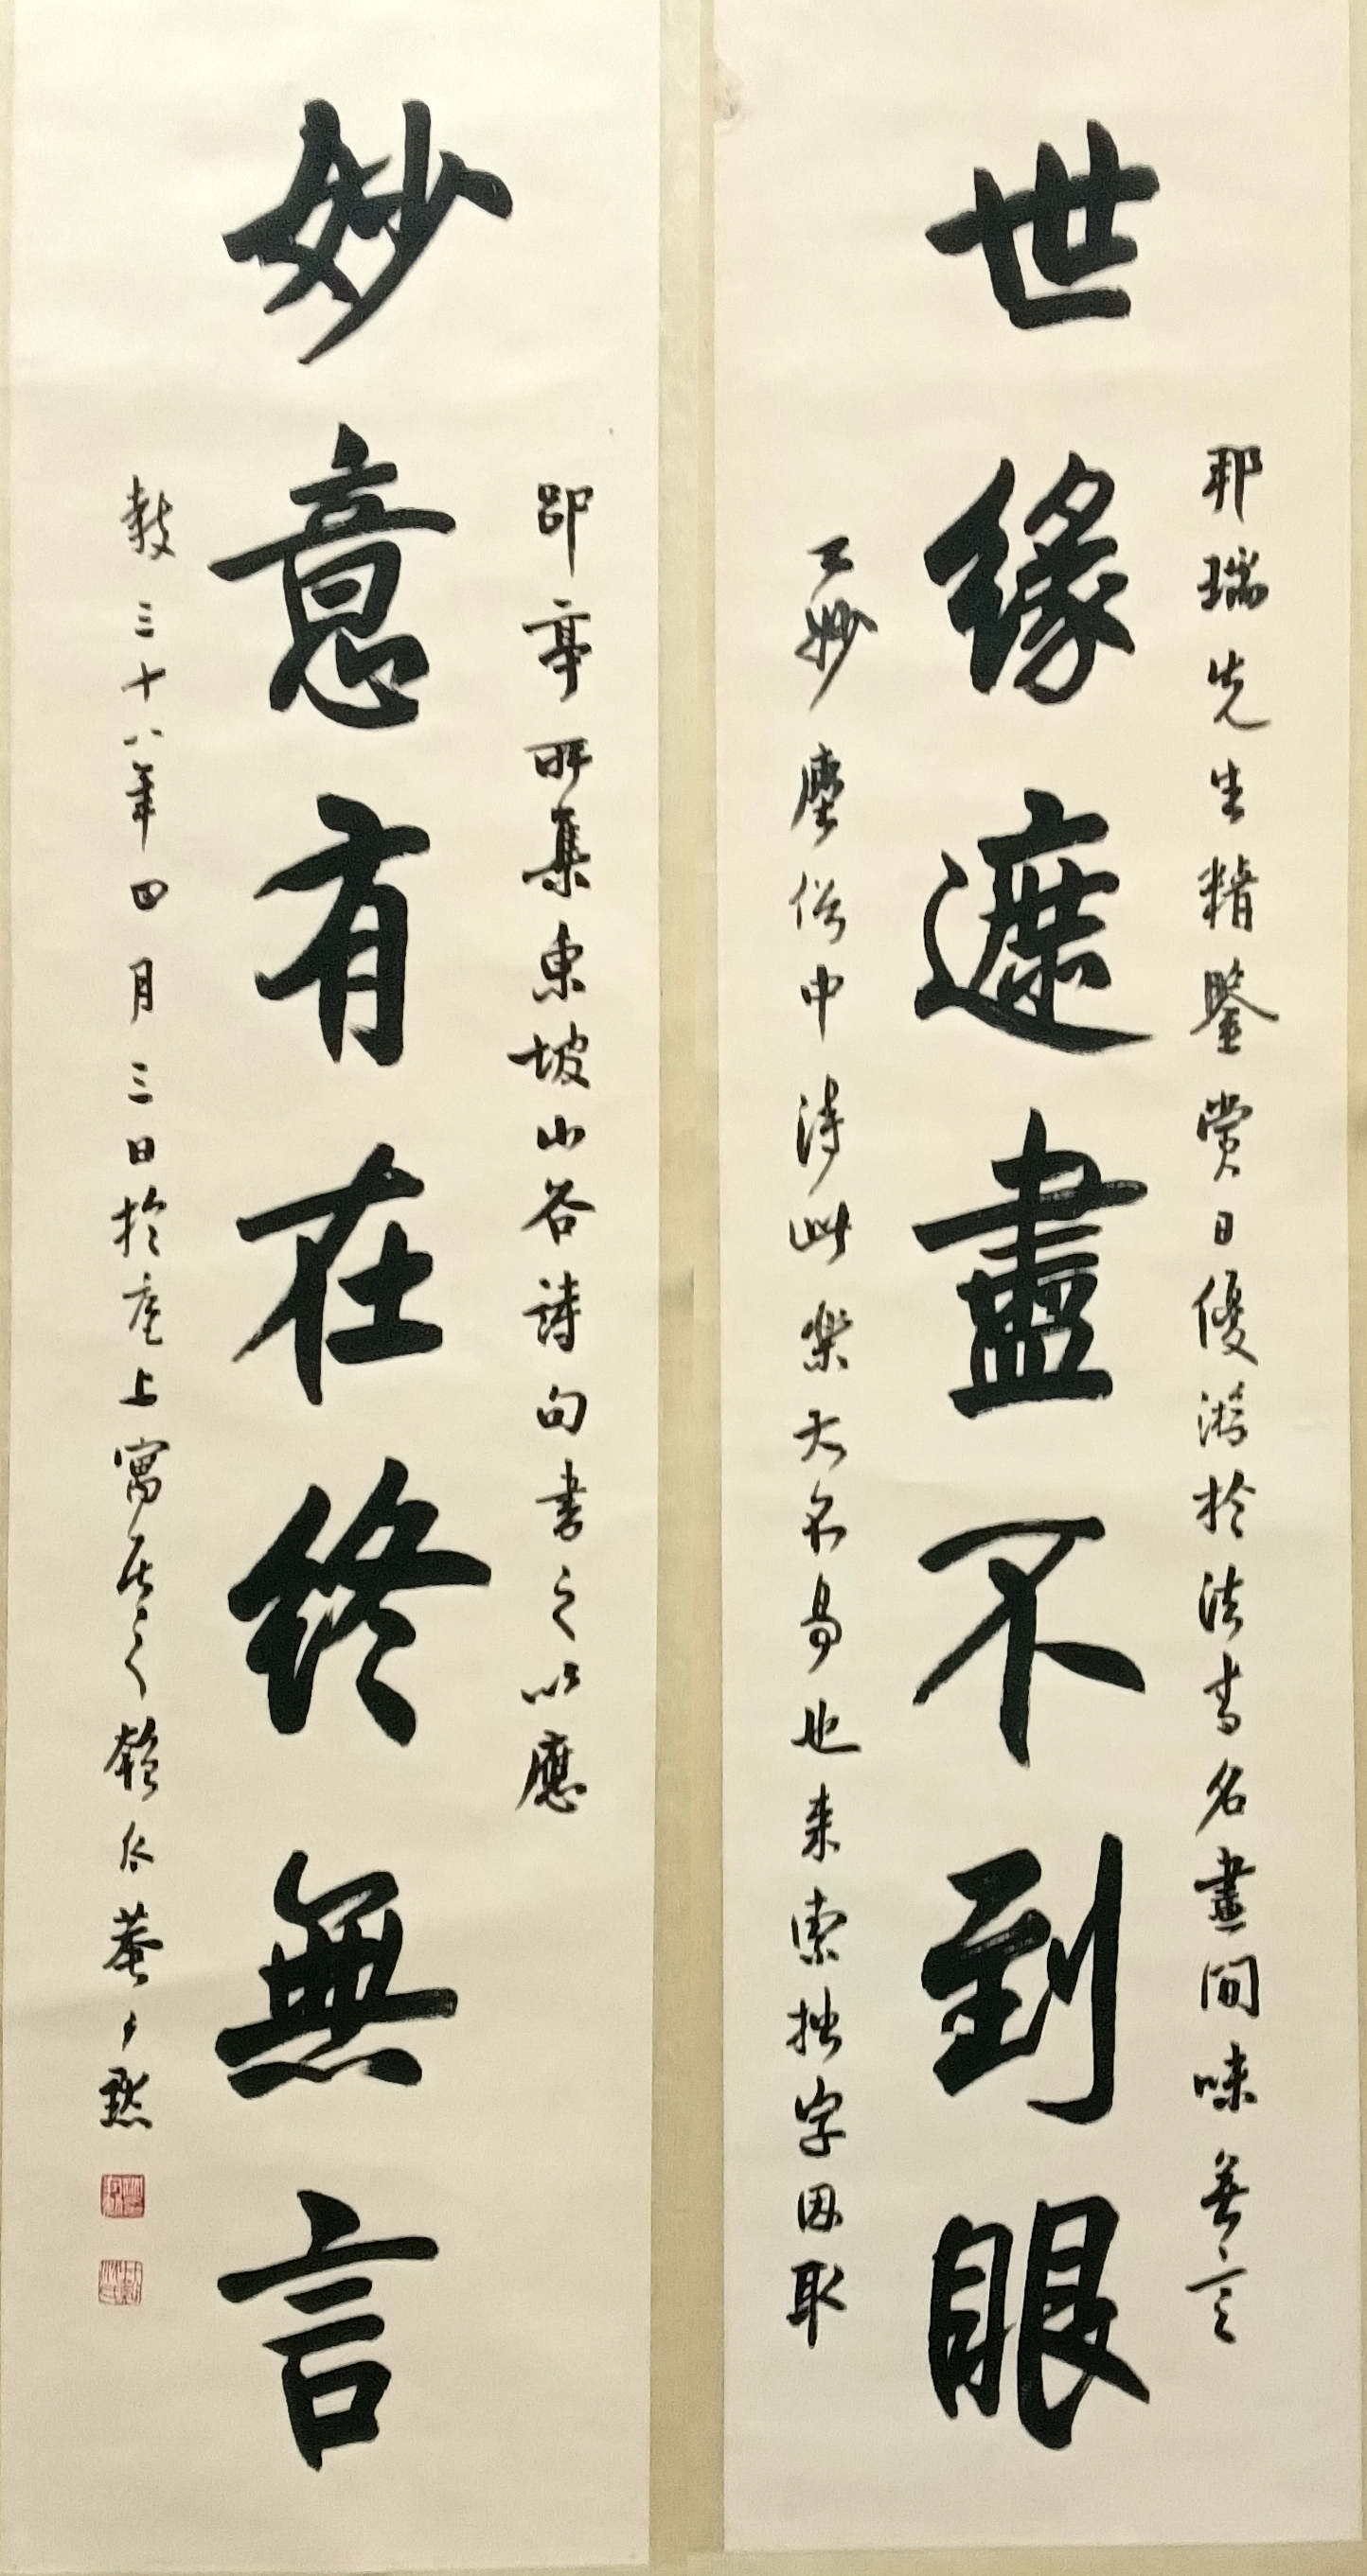 世緣遮盡不到眼
邦瑞先生精鑒賞日優游於法書名畫間味無言
之妙塵俗中得此樂大不易也来索拙字因取
妙意有在終無言
郘亭所集東坡山谷詩句書之以應
教三十八年四月三日於滬上寓居之 尹默